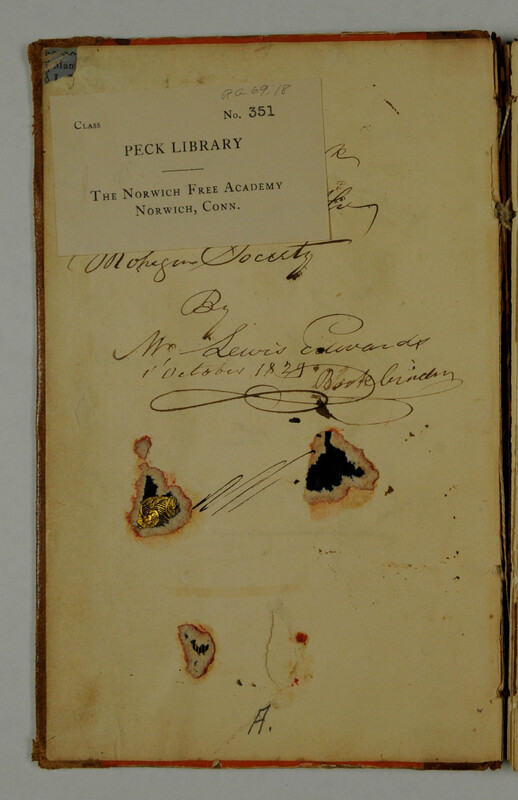 RG 69.18
Class No. 351
PECK LIBRARY
The Norwich Free Academy
Norwich, Conn.
Mohegan Society
By
Mr Lewis Edwards
1st October 1829 Book binder
A.